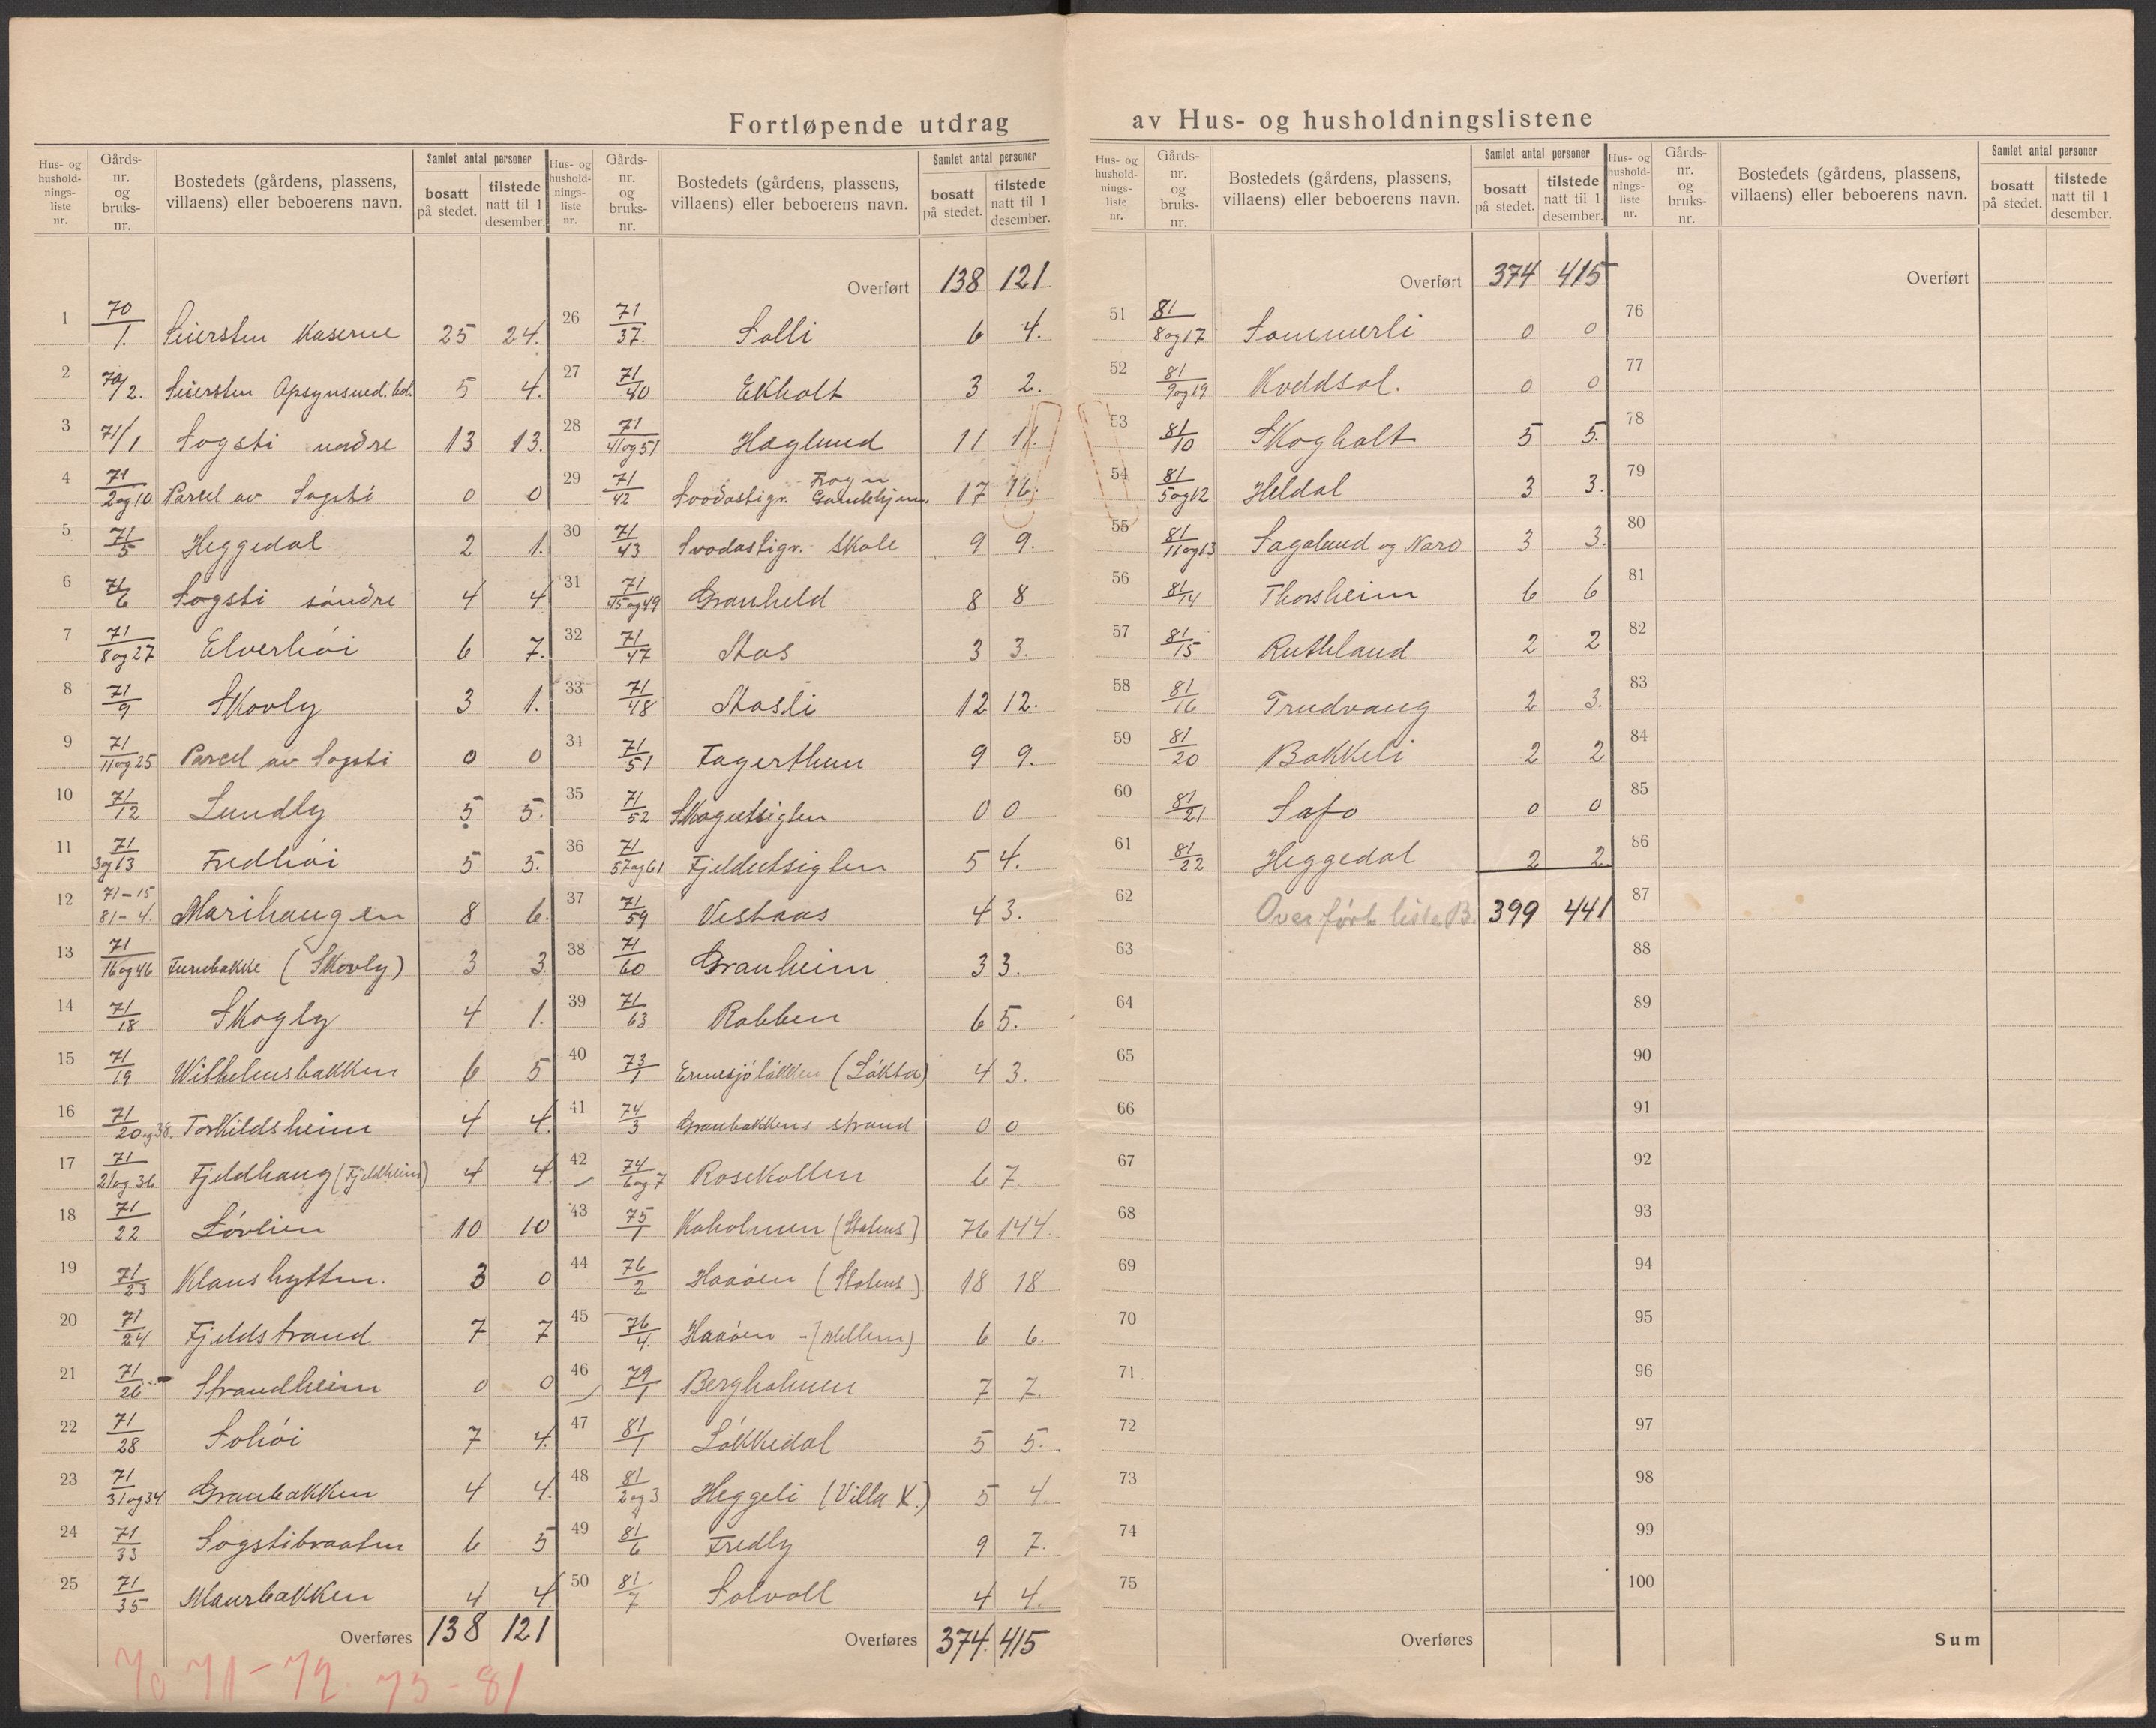 Fortløpende utdrag av Hus- og husholdningslistene
Hus- og husholdnings-liste nr. | Gårds-nr. og bruks-nr. | Bostedets (gårdens, plassens, villaens) eller beboerens navn. | Samlet antal personer | bosatt på stedet. | tilstede natt til 1 desember.
1 70/1. Seiersten Kaserne 25 24.
2 70/2. Seiersten Opsynsmed. bol. 5 4.
3 71/1 Sogsti nordre 13 13.
4 71/2og10 Parcel av Sogsti 0 0
5 71/5 Heggedal 2 1.
6 71/6 Sogsti söndre 4 4
7 71/8og27 Elverhöi 6 7.
8 71/9 Skovly 3 1.
9 71/11og25 Parcel av Sogsti 0 0
10 71/12 Lundly 5 5.
11 71/3og13 Fredhöi 5 5.
12 71-15 81-4. Marihaugen 8 6.
13 71/16og46 Furubakke (Skovly) 3 3
14 71/18 Skogly 4 1.
15 71/19 Wilhelmsbakken 6 5
16 71/20og38. Torkildsheim 4 4.
17 71/21og36 Fjeldhaug (Fjeldheim) 4 4.
18 71/22 Lövlien 10 10
19 71/23 Klaushytten. 3 0
20 71/24 Fjeldstrand 7 7
21 71/26 Strandheim 0 0
22 71/28 Solhöi 7 4.
23 71/31og34 Granbakken 4 4.
24 71/33 Sogstibraaten 6 5
25 71/35 Maurbakken 4 4.
Overføres 138 121
70 71-72. 73-81
Hus- og hushold-nings-liste nr. | Gårds-nr. og bruks-nr. | Bostedets (gårdens, plassens, villaens) eller beboerens navn. | Samlet antal personer | bosatt på stedet. | tilstede natt til 1 desember.
Overført 138 121
26 71/37. Solli 6 4.
27 71/40 Ekholt 3 2.
28 71/41og51 Haglund 11 11.
29 71/42 Frogn Gamlehjem. 17 16.
30 71/43 Skole 9 9.
31 71/45og49 Granheld 8 8
32 71/47 Aas 3 3.
33 71/48 Aasli 12 12.
34 71/51 Fagerthun 9 9.
35 71/52 Skogutsigten 0 0
36 71/57og61 Fjeldutsigten 5 4.
37 71/59 Vestaas 4 3.
38 71/60 Granheim 3 3.
39 71/63 Rabben 6 5.
40 73/1 (Lökka) 4 3.
41 74/3 Granbakkens strand 0 0
42 74/6og7 Rosekollen 6 7.
43 75/1 Kaholmen (Statens) 76 144.
44 76/2 Haaöen (Statens) 18 18
45 76/4. Haaöen - (Mellem) 6 6.
46 79/1 Bergholmen 7 7.
47 81/1 Lökkedal 5 5.
48 81/2og3 Heggeli (Villa X.) 5 4.
49 81/6 Fredly 9 7.
50 81/7 Solvoll 4 4.
Overføres 374. 415
Hus- og hushold-nings-liste nr. | Gårds-nr. og bruks-nr. | Bostedets (gårdens, plassens, villaens) eller beboerens navn. | Samlet antal personer | bosatt på stedet. | tilstede natt til 1 desember.
Overført 374 415
51 81/8og17 Sommerli 0 0
52 81/9og19 Kveldsol. 0 0
53 81/10 Skogholt 5 5.
54 81/5og12 Heldal 3 3.
55 81/11og13 Sagalund og Naro 3 3.
56 81/14 Thorsheim 6 6
57 81/15 Ruthland 2 2
58 81/16 Trudvang 2 3.
59 81/20 Bakkeli 2 2
60 81/21 Safo 0 0
61 81/22 Heggedal 2 2.
62 Overført liste B. 399 441
63
64
65
66
67
68
69
70
71
72
73
74
75
Overføres
Hus- og hushold-nings-liste nr. | Gårds-nr. og bruks-nr. | Bostedets (gårdens, plassens, villaens) eller beboerens navn. | Samlet antal personer | bosatt på stedet. | tilstede natt til 1 desember.
Overført
76
77
78
79
80
81
82
83
84
85
86
87
88
89
90
91
92
93
94
95
96
97
98
99
100
Sum